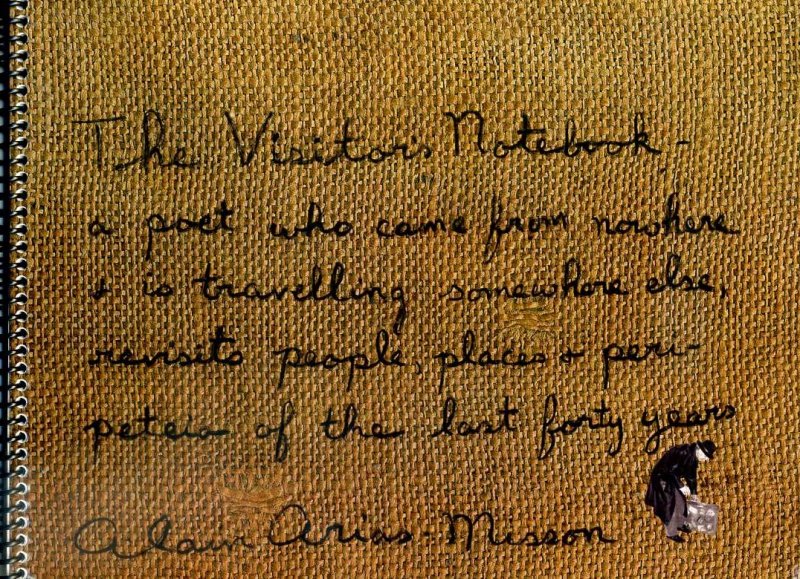 The Visitor's Notebook -
a poet who came from nowhere
& is travelling somewhere else,
revisits people, places & peri-
peteia of the last forty years
Alain Arias-Misson